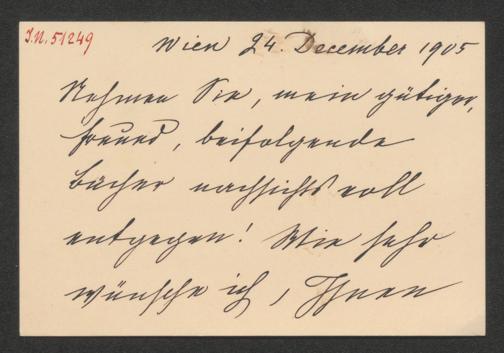 J.N. 51249
Wien 24. December 1905
Nehmen Sie, mein gütiger,
Freund, beifolgende
Bücher nachsichtsvoll
entgegen! Wie sehr
wünsche ich, Ihnen